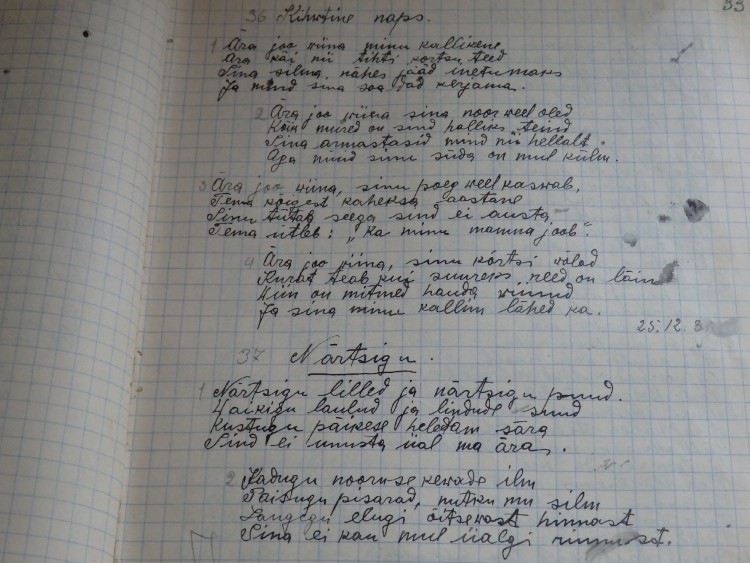 33
36 Kihutine naps.
1 Ära joo wiina minu kallikene
Ära käi nii tihti kõrtsu teed
Sina silma nähes jääd inetumaks
Ja mind sina saadad kerjama.
2 Ära joo wiina sina noor weel oled
Kõik mured on sind halliks teind
Sina armastasid mind nii hellalt
Aga nüüd sinu süda on mul külm.
3 Ära joo wiina, sinu poeg weel kaswab,
Tema kõigest kaheksa aastane
Sinu tütar seega sind ei austa
Tema ütleb: „Ka minu mamma joob".
4 Ära joo wiina, sinu kõrtsi wolad
Kurat teab kui suureks need on läin
Wiin on mitmed hauda wiinud
Ja sina minu kallim lähed ka.
25.12
37 Närtsigu.
1 Närtsigu lilled ja närtsigu puud.
Waikigu laulud ja lindude suud
Kustugu päikese heledam sära
Sind ei unusta iial ma ära.
2 Kadugu nooruse kewade ilm
Paisugu pisarad, nutku mu silm
Langegu elugi õitsewast hinnast
Sina ei kau mul iialgi rinnust.